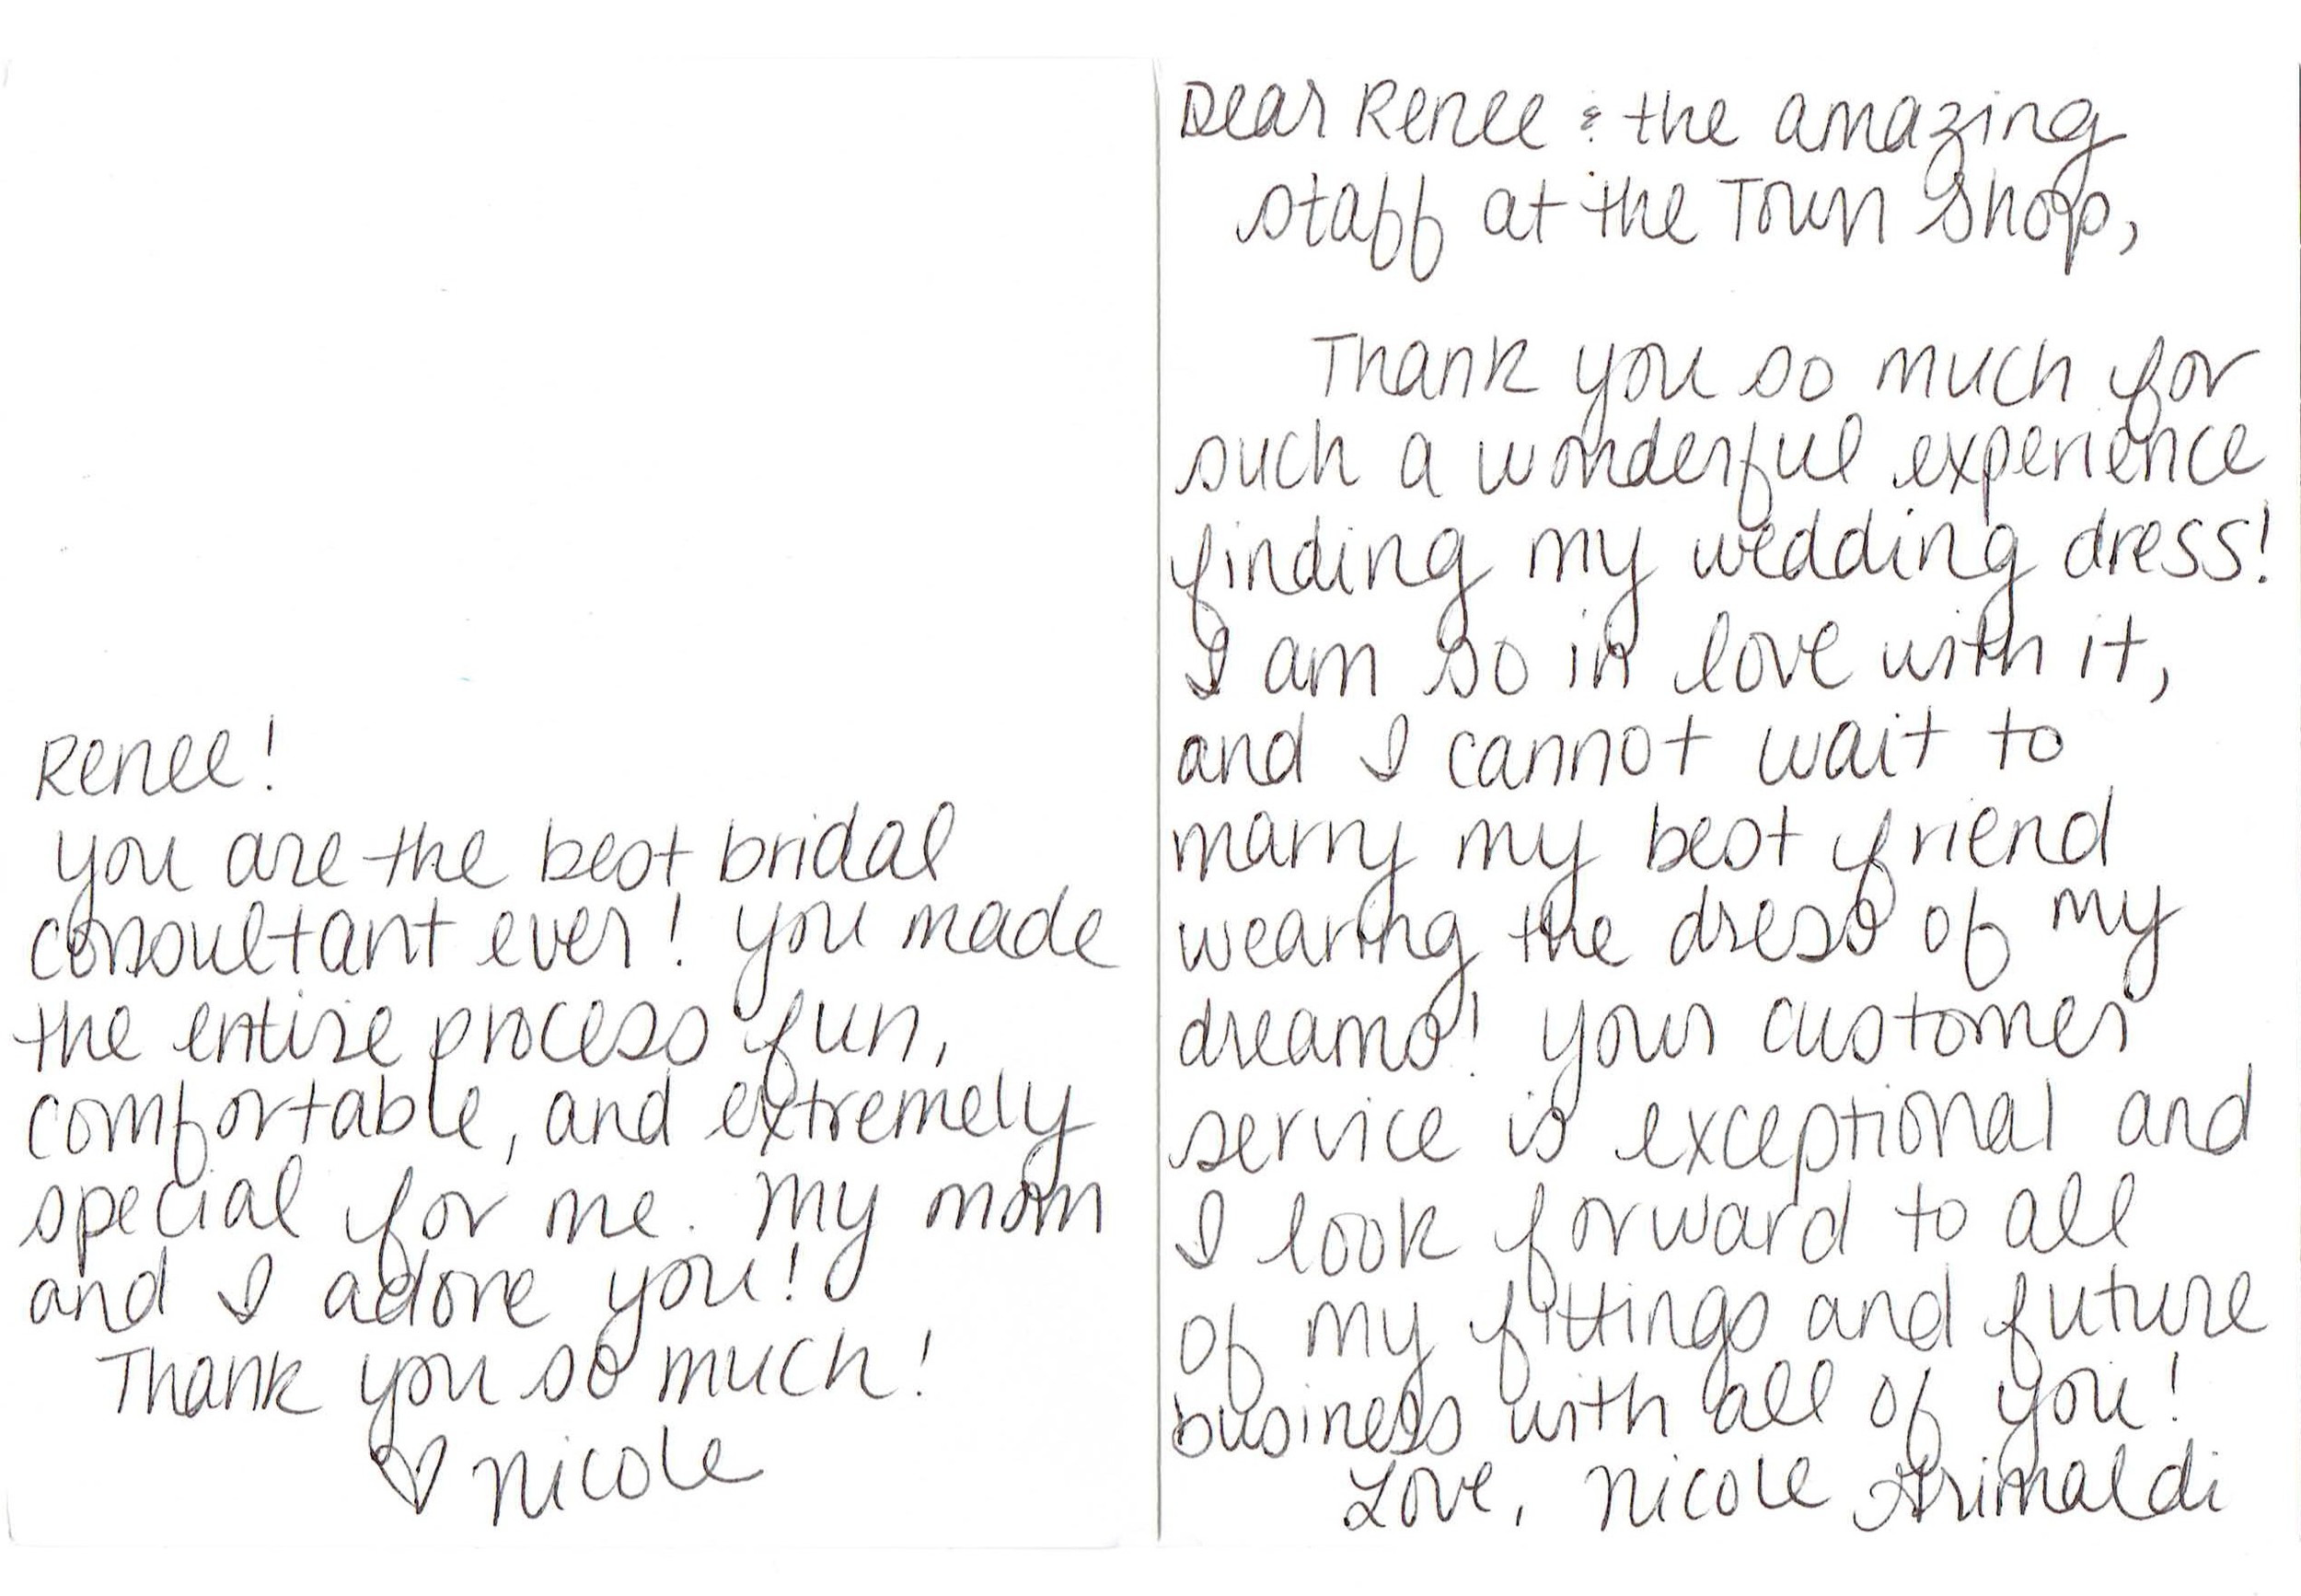 Renee!
you are the best bridal
consultant ever! you made
the entire process fun,
comfortable, and extremely
special for me. My mom
and I adore you!
Thank you so much!
♡ Nicole
Dear Renee & the amazing
staff at the Town Shop,
Thank you so much for
such a wonderful experience
finding my wedding dress!
I am so in love with it,
and I cannot wait to
marry my best friend
wearing the dress of my
dreams! your customer
service is exceptional and
I look forward to all
of my fittings and future
business with all of you!
Love, Nicole